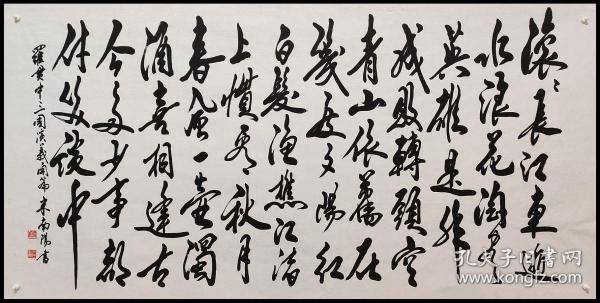 滚〻長江東逝
水浪花淘盡
英雄是非
成敗轉頭空
青山依舊在
幾度夕陽紅
白髮漁樵江渚
上慣看秋月
春風一壺濁
酒喜相逢古
今多少事都
付笑談中
羅貫中三國演義開篇 米南陽書
孔夫子旧书网
www.kongfz.com